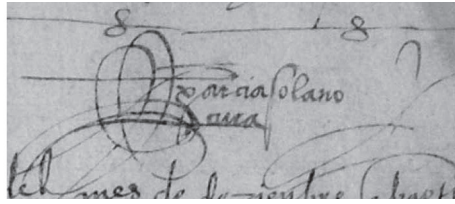 8 8
garcia solano
cura
del mes de deziembre